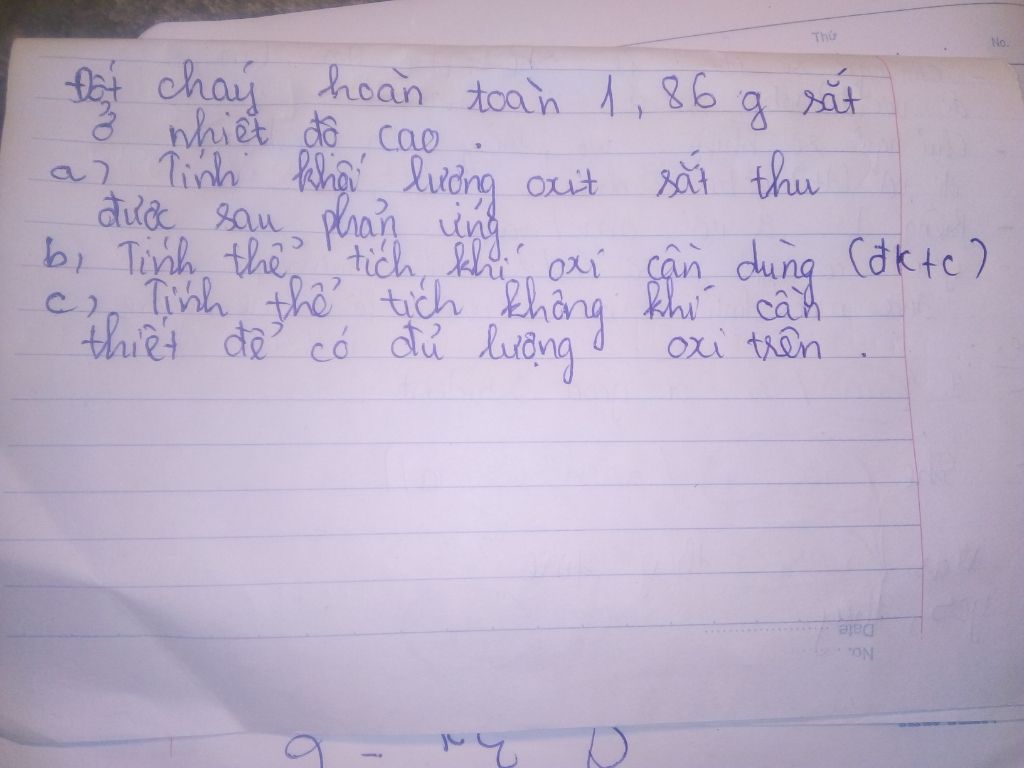 Thứ
No.
Đốt cháy hoàn toàn 1,86 g sắt
ở nhiệt độ cao.
a) Tính khối lượng oxit sắt thu
được sau phản ứng
b, Tính thể tích khí oxi cần dùng (đktc)
c, Tính thể tích không khí cần
thiết để có đủ lượng oxi trên.
Date
No.